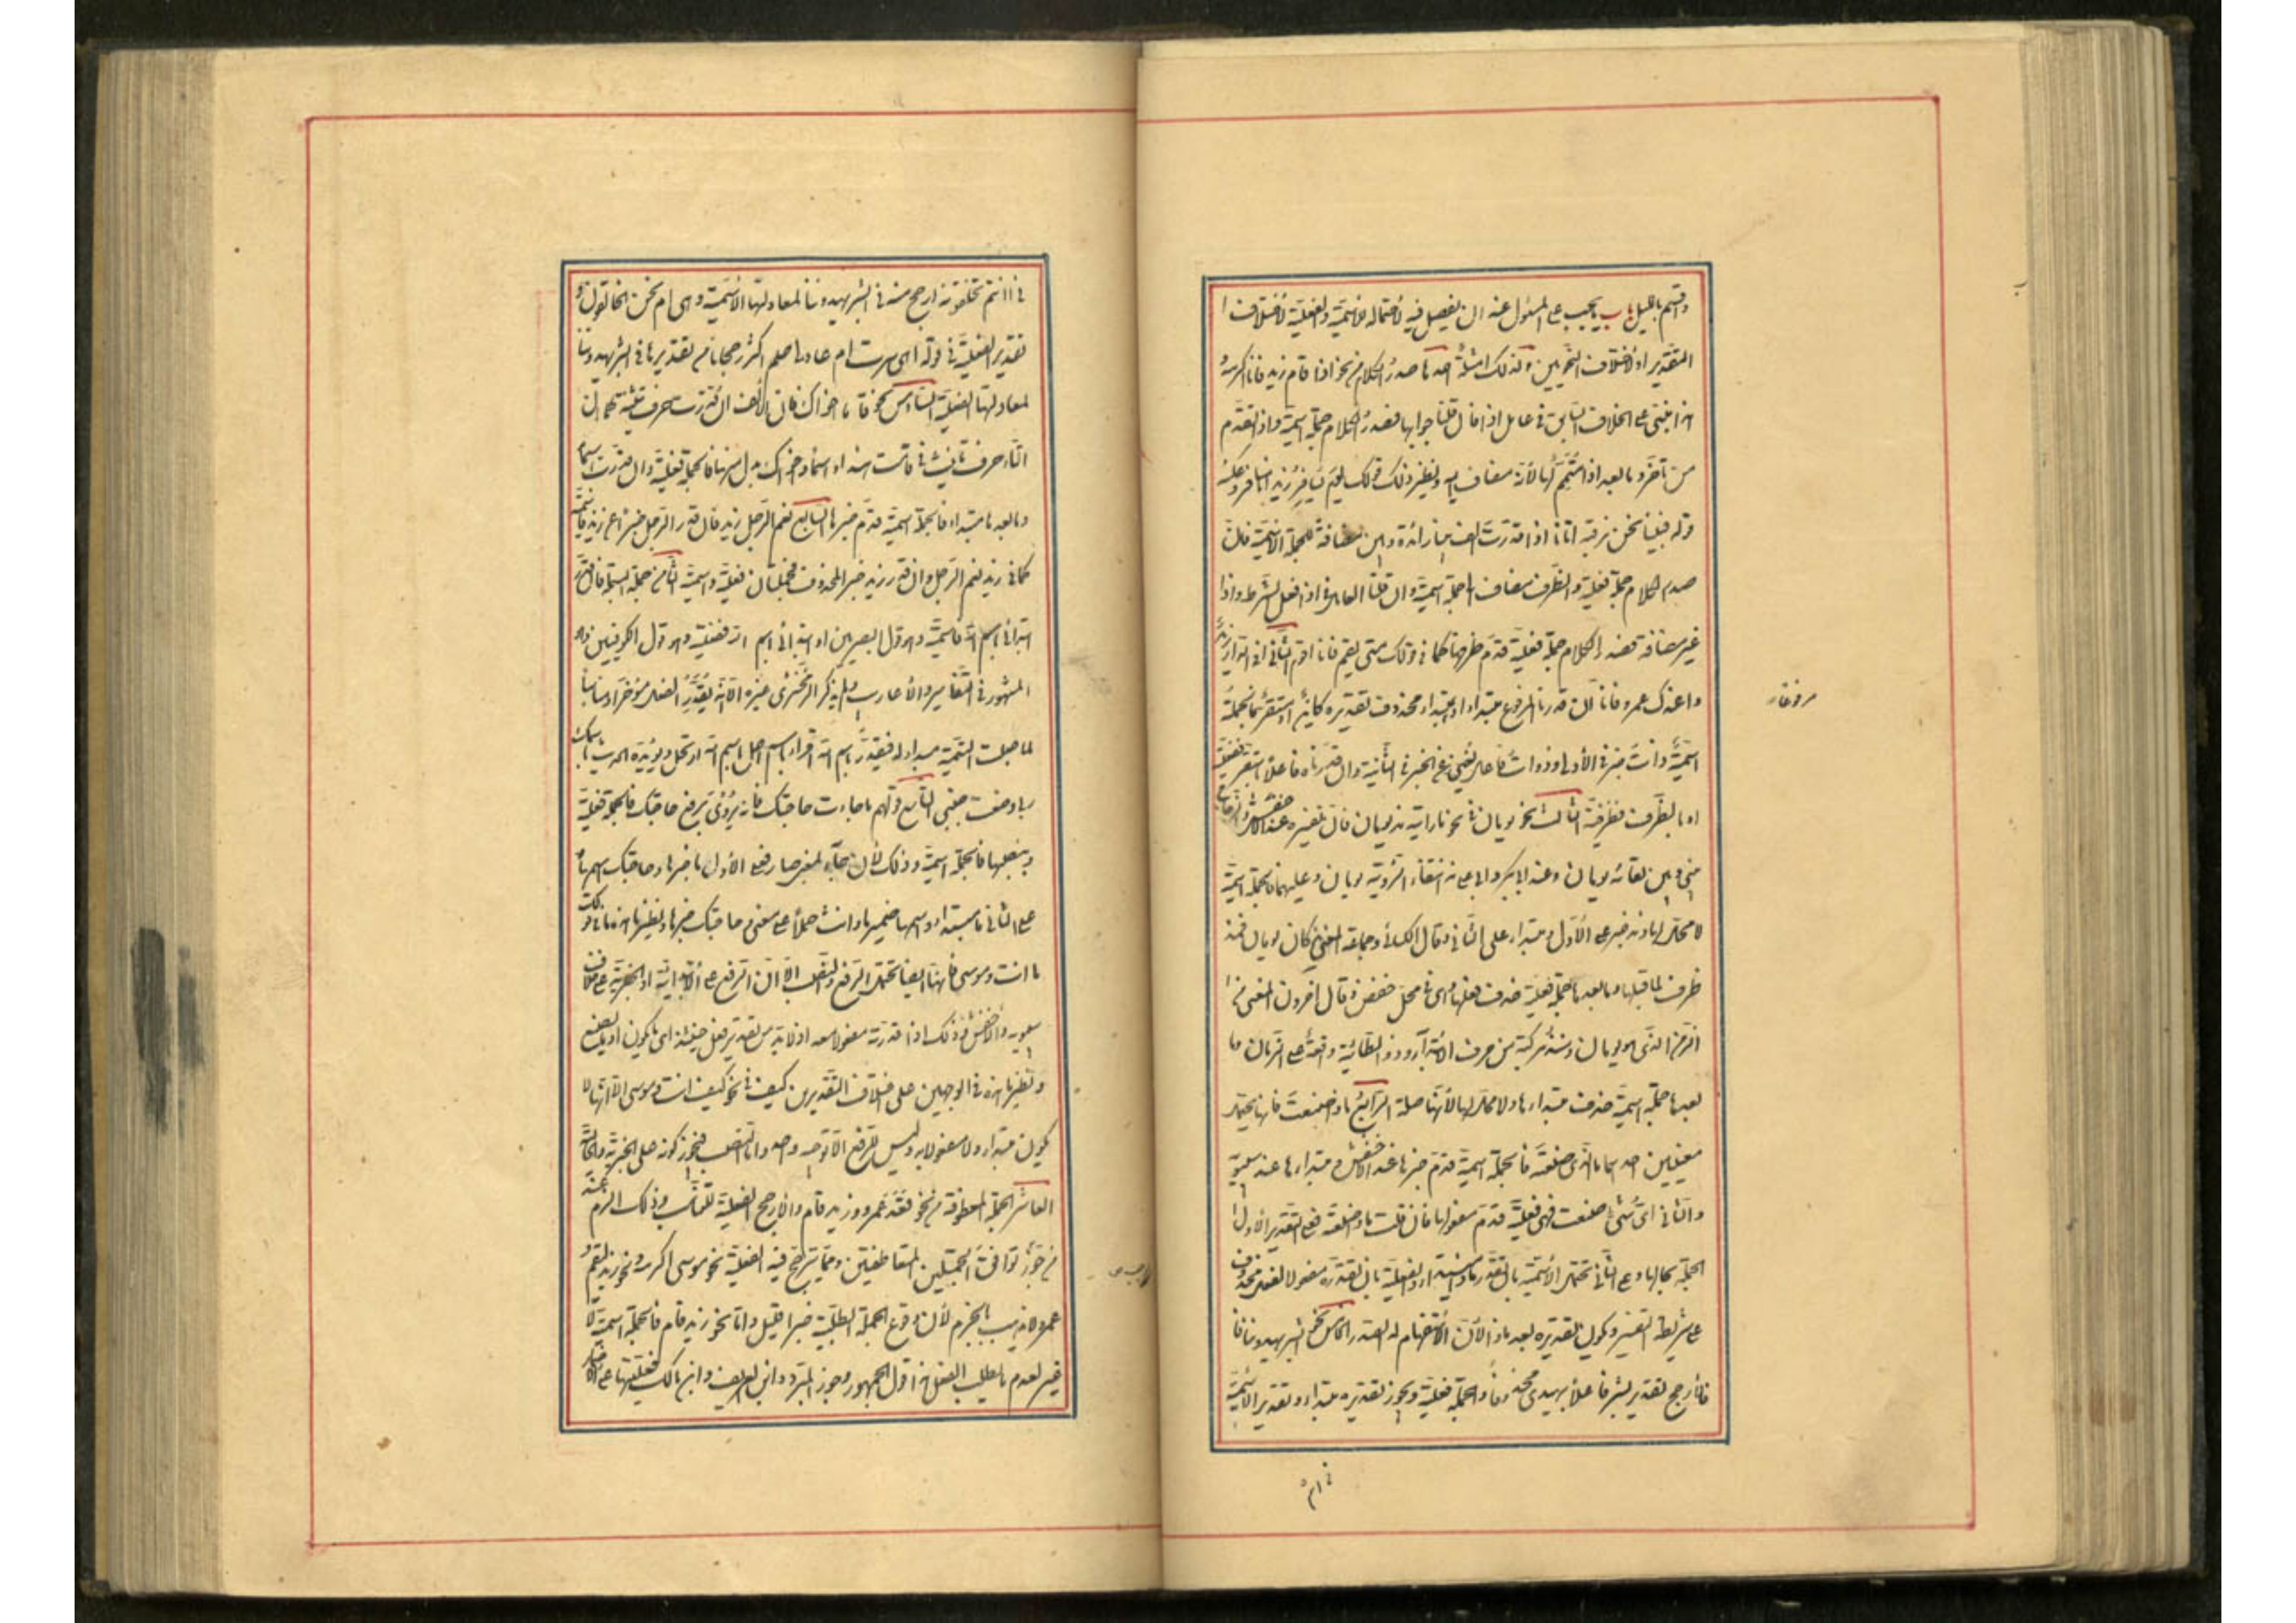 وقسم بالليل باب يجب على المسئول عنه ان يفصل فيه لاحتماله للاسمية والفعلية لاختلاف ا
التقدير او لاختلاف النحويين ولذلك امثلة احدها صدر الكلام من نحو اذا قام زيد فانا اكرمه
هذا مبنى على الخلاف السابق فى عامل اذا فان قلنا جوابها فصدر الكلام جملة اسمية واذا تقدم
من تأخر وما بعد اذا متمم لها لانه مضاف اليه ونظير ذلك قولك يوم يسافر زيد انا مسافر وعكسه
قوله فبينا نحن نرقبه اتانا اذا قدرت الف بينا زائدة وبين مضافة للجملة الاسمية فان
صدر الكلام جملة فعلية والظرف مضاف الى جملة اسمية وان قلنا العامل فى اذا فعل الشرط واذا
غير مضافة فصدر الكلام جملة فعلية قدم ظرفها كما فى قولك متى يقم فانا اقوم الثانى افى الدار زيد
واعندك عمرو فانا ان قدرنا المرفوع مبتداء او مبتداء محذوف تقديره كاين او مستقر فالجملة
اسمية ذات خبر فى الاولى وذوات فاعل يغنى عن الخبر فى الثانية وان قدرناه فاعلا باستقر ففعلية
او بالظرف فظرفية الثالث نحو يومان فى نحو ما رايته مذ يومان فان تفسيره عند الاخفش والزجاج
بينى وبين لقائه يومان وعند ابى بكر وابى على مدة انتفاء الرؤية يومان وعليهما فالجملة اسمية
لا محل لها ومذ خبر على الاول ومبتداء على الثانى وقال الكسائى وجماعة المعنى مذ كان يومان فمذ
ظرف لما قبلها وما بعدها جملة فعلية حذف فعلها وهى فى محل خفض وقال اخرون المعنى من ا
الزمن الذى هو يومان ومنذ مركبة من حرف الابتداء وذو الطائية واقعة على الزمان وما
بعدها جملة اسمية حذف مبتداءها ولا محل لها لانها صلة الرابع ماذا صنعت فانه يحتمل
معنيين احدهما ما الذى صنعته فالجملة اسمية قدم خبرها عند الاخفش ومبتداءها عند سيبويه
والثانى اى شئ صنعت فهى فعلية قدم مفعولها فان قلت ماذا صنعته فعلى التقدير الاول ا
الجملة بحالها وعلى الثانى تحتمل الاسمية بان تقدر ماذا مبتداء والفعلية بان تقدره مفعولا لفعل محذوف
على شريطة التفسير ويكون تقديره بعد ماذا لان الاستفهام له الصدر الخامس نحو ابشر يهدوننا فا
فالارجح تقدير بشر فاعلا بيهدى محذوفا والجملة فعلية ويجوز تقديره مبتداء وتقدير الاسمية
فى اانتم
فى اانتم تخلقونه ارجح منه فى ابشر يهدوننا لمعادلتها الاسمية وهى ام نحن الخالقون و
تقدير الفعلية فى قوله اهى سرت ام عادنى حلم اكثر رجحانا من تقديرها فى ابشر يهدوننا
لمعادلتها الفعلية السادس نحو قاما اخواك فان الالف ان قدرت حرف تثنية كما ان
التاء حرف تانيث فى قامت هند او اسما واخواك بدل منها فالجملة فعلية وان قدرت اسما
وما بعدها مبتداء فالجملة اسمية قدم خبرها السابع نعم الرجل زيد فان قدر الرجل خبرا عن زيد فاسمية
كما فى زيد نعم الرجل وان قدر زيد خبر المحذوف فجملتان فعلية واسمية الثامن جملة البسملة فان قدر
ابتدائى باسم الله فاسمية وهو قول البصريين او ابتدائى باسم الله ففعلية وهو قول الكوفيين وهو
المشهور فى التفاسير والاعاريب ولم يذكر الزمخشرى غيره الا انه يقدر الفعل مؤخرا ومناسبا
لما جعلت التسمية مبداء له فيقدر باسم الله اقراء باسم الله احل باسم الله ارتحل ويؤيده الحديث باسمك
ربى وضعت جنبى التاسع قولهم ما جاءت حاجتك فانه يروى برفع حاجتك فالجملة فعلية
وبنصبها فالجملة اسمية وذلك لان جاء بمعنى صار فعلى الاول ما خبرها وحاجتك اسمها و
على الثانى ما مبتداء واسمها ضمير ما وانث حملا على معنى ما وحاجتك خبرها ونظير ما هذه ما فى قولك
ما انت وموسى فانها ايضا تحتمل الرفع والنصب الا ان الرفع على الابتدائية او الخبرية على خلاف
سيبويه والاخفش وذلك اذا قدرته مفعولا معه اذ لا بد من تقدير فعل حينئذ اى ما تكون او ما تصنع
ونظير ما هذه فى الوجهين على اختلاف التقديرين كيف فى نحو كيف انت وموسى الا انها لا
تكون مبتداء ولا مفعولا به وليس للرفع الا توجيه واحد واما النصب فيجوز كونه على الخبرية والحالية
العاشر الجملة المعطوفة من نحو قعد عمرو وزيد قام والارجح الفعلية للتناسب وذلك الزم عند
من اوجب توافق الجملتين المتعاطفتين ومما يترجح فيه الفعلية نحو موسى اكرمه ونحو زيد ليقم و
عمرو لا يذهب بالجزم لان وقوع الجملة الطلبية خبرا قليل واما نحو زيد قام فالجملة اسمية لا
غير لعدم ما يطلب الفعل هذا قول الجمهور وجوز المبرد وابن العريف وابن مالك فعليتها على الاضمار